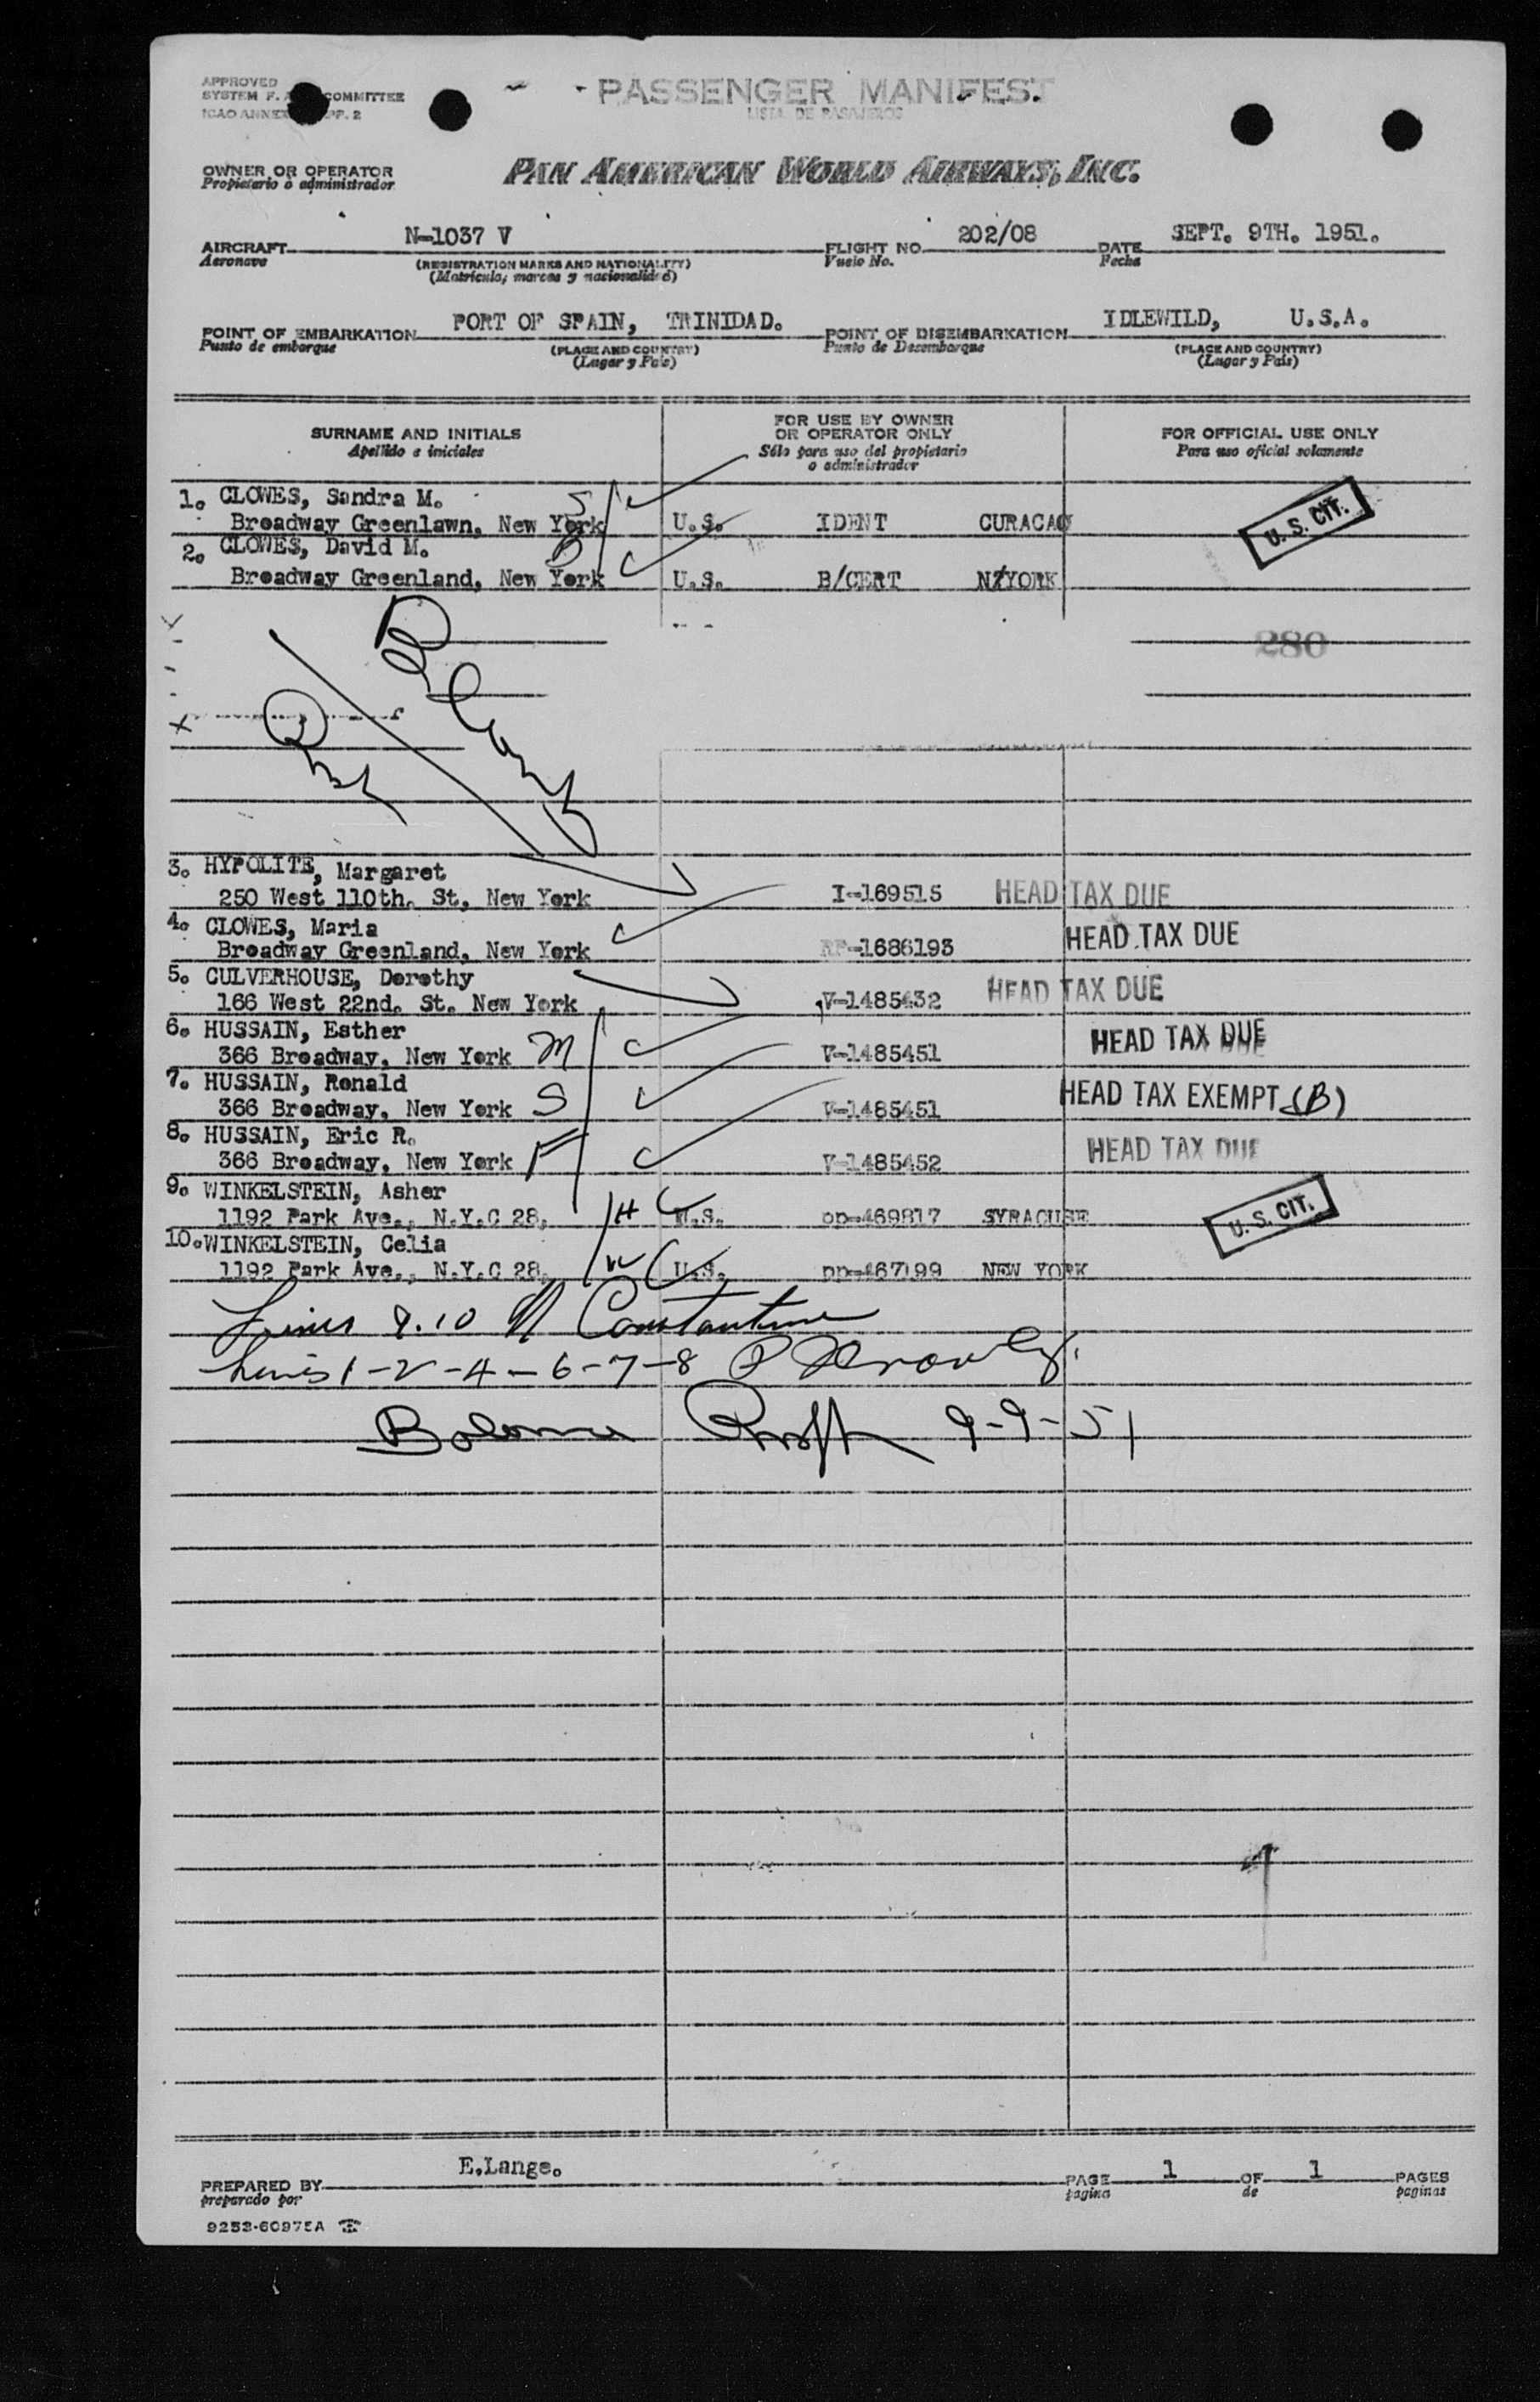 APPROVED
SYSTEM F. COMMITTEE
ICAO ANNEX PP. 2
PASSENGER MANIFEST
LISTA DE PASAJEROS
OWNER OR OPERATOR
Propietario o administrador
PAN AMERICAN WORLD AIRWAYS, INC.
AIRCRAFT N-1037 V FLIGHT NO. 202/08 DATE SEPT. 9TH. 1951.
Aeronave (REGISTRATION MARKS AND NATIONALITY) Vuelo No. Fecha
(Matricula, marcas y nacionalidad)
POINT OF EMBARKATION PORT OF SPAIN, TRINIDAD. POINT OF DISEMBARKATION IDLEWILD, U.S.A.
Punto de embarque (PLACE AND COUNTRY) Punto de Desembarque (PLACE AND COUNTRY)
(Lugar y País) (Lugar y País)
SURNAME AND INITIALS FOR USE BY OWNER OR OPERATOR ONLY FOR OFFICIAL USE ONLY
Apellido e iniciales Sólo para uso del propietario o administrador Para uso oficial solamente
1. CLOWES, Sandra M. S
Broadway Greenlawn, New York U.S. IDENT CURACAO U. S. CIT.
2. CLOWES, David M. D
Broadway Greenland, New York U.S. B/CERT N/YORK
280
3. HYPOLITE, Margaret
250 West 110th. St, New York I-169515 HEAD TAX DUE
4. CLOWES, Maria
Broadway Greenland, New York RP-1686193 HEAD TAX DUE
5. CULVERHOUSE, Dorothy
166 West 22nd. St. New York V-1485432 HEAD TAX DUE
6. HUSSAIN, Esther
366 Broadway, New York M V-1485451 HEAD TAX DUE
7. HUSSAIN, Ronald
366 Broadway, New York S V-1485451 HEAD TAX EXEMPT (B)
8. HUSSAIN, Eric R.
366 Broadway, New York F V-1485452 HEAD TAX DUE
9. WINKELSTEIN, Asher
1192 Park Ave., N.Y.C 28, H U.S. pp-469817 SYRACUSE U. S. CIT.
10. WINKELSTEIN, Celia
1192 Park Ave., N.Y.C 28, W U.S. pp-467199 NEW YORK
Lines 9.10 Constantine
Lines 1-2-4-6-7-8
Balance 9-9-51
PREPARED BY E.Lange. PAGE 1 OF 1 PAGES
preparado por pagina de paginas
9253-60975A